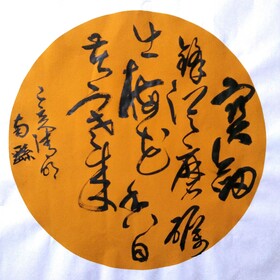 寶劍
鋒從磨礪
出梅花香自
苦寒來
清明